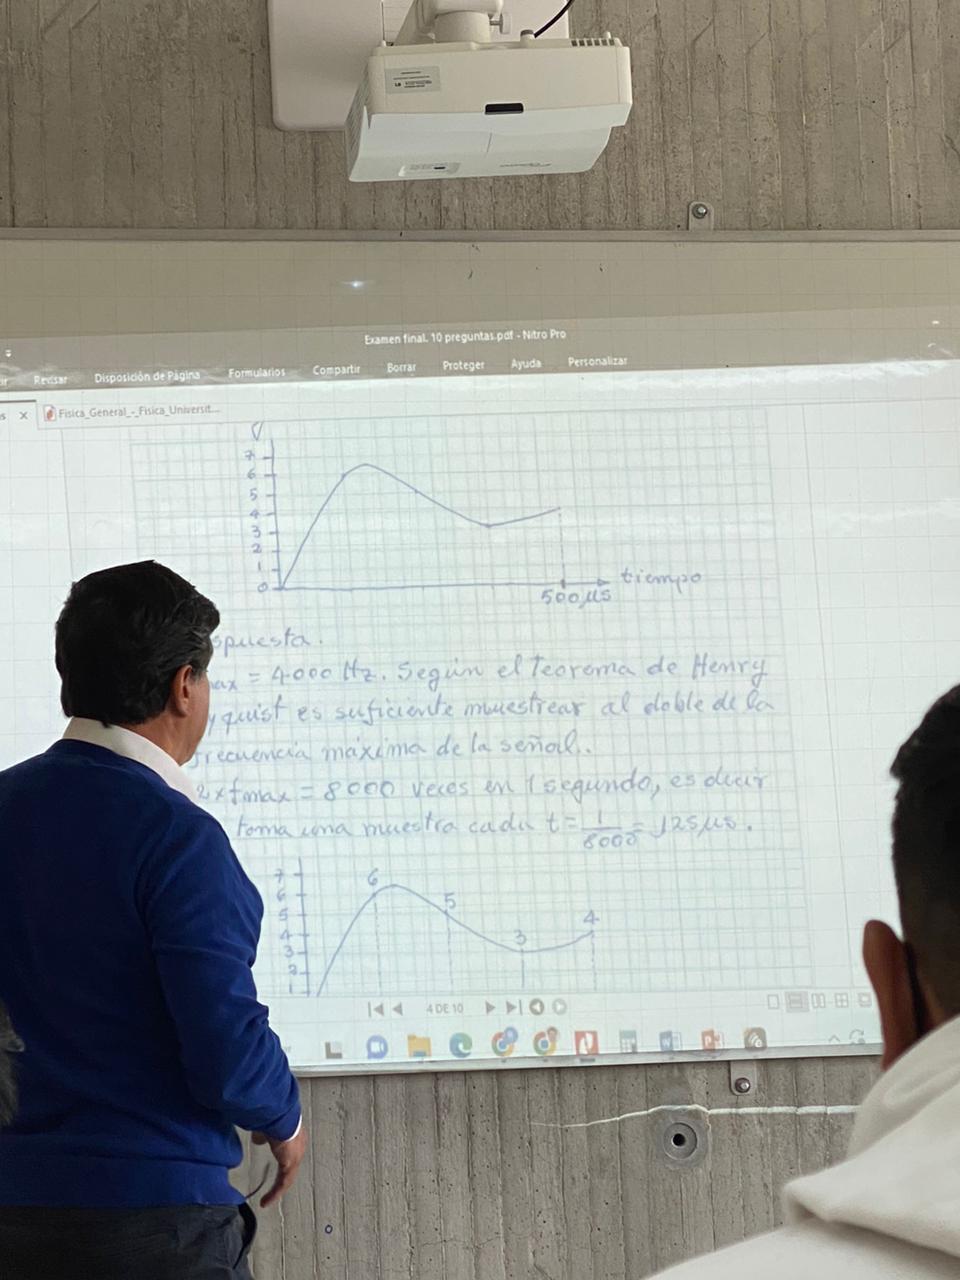 Examen final. 10 preguntas.pdf - Nitro Pro
Revisar Disposición de Página Formularios Compartir Borrar Proteger Ayuda Personalizar
Fisica_General_-_Fisica_Universit...
V
7
6
5
4
3
2
1
0
tiempo
500 μs
spuesta.
max = 4000 Hz. Según el Teorema de Henry
yquist es suficiente muestrear al doble de la
frecuencia máxima de la señal.
2 x fmax = 8000 veces en 1 segundo, es decir
toma una muestra cada t = 1/8000 = 125 μs.
7
6
5
4
3
2
1
6
5
3
4
4 DE 10